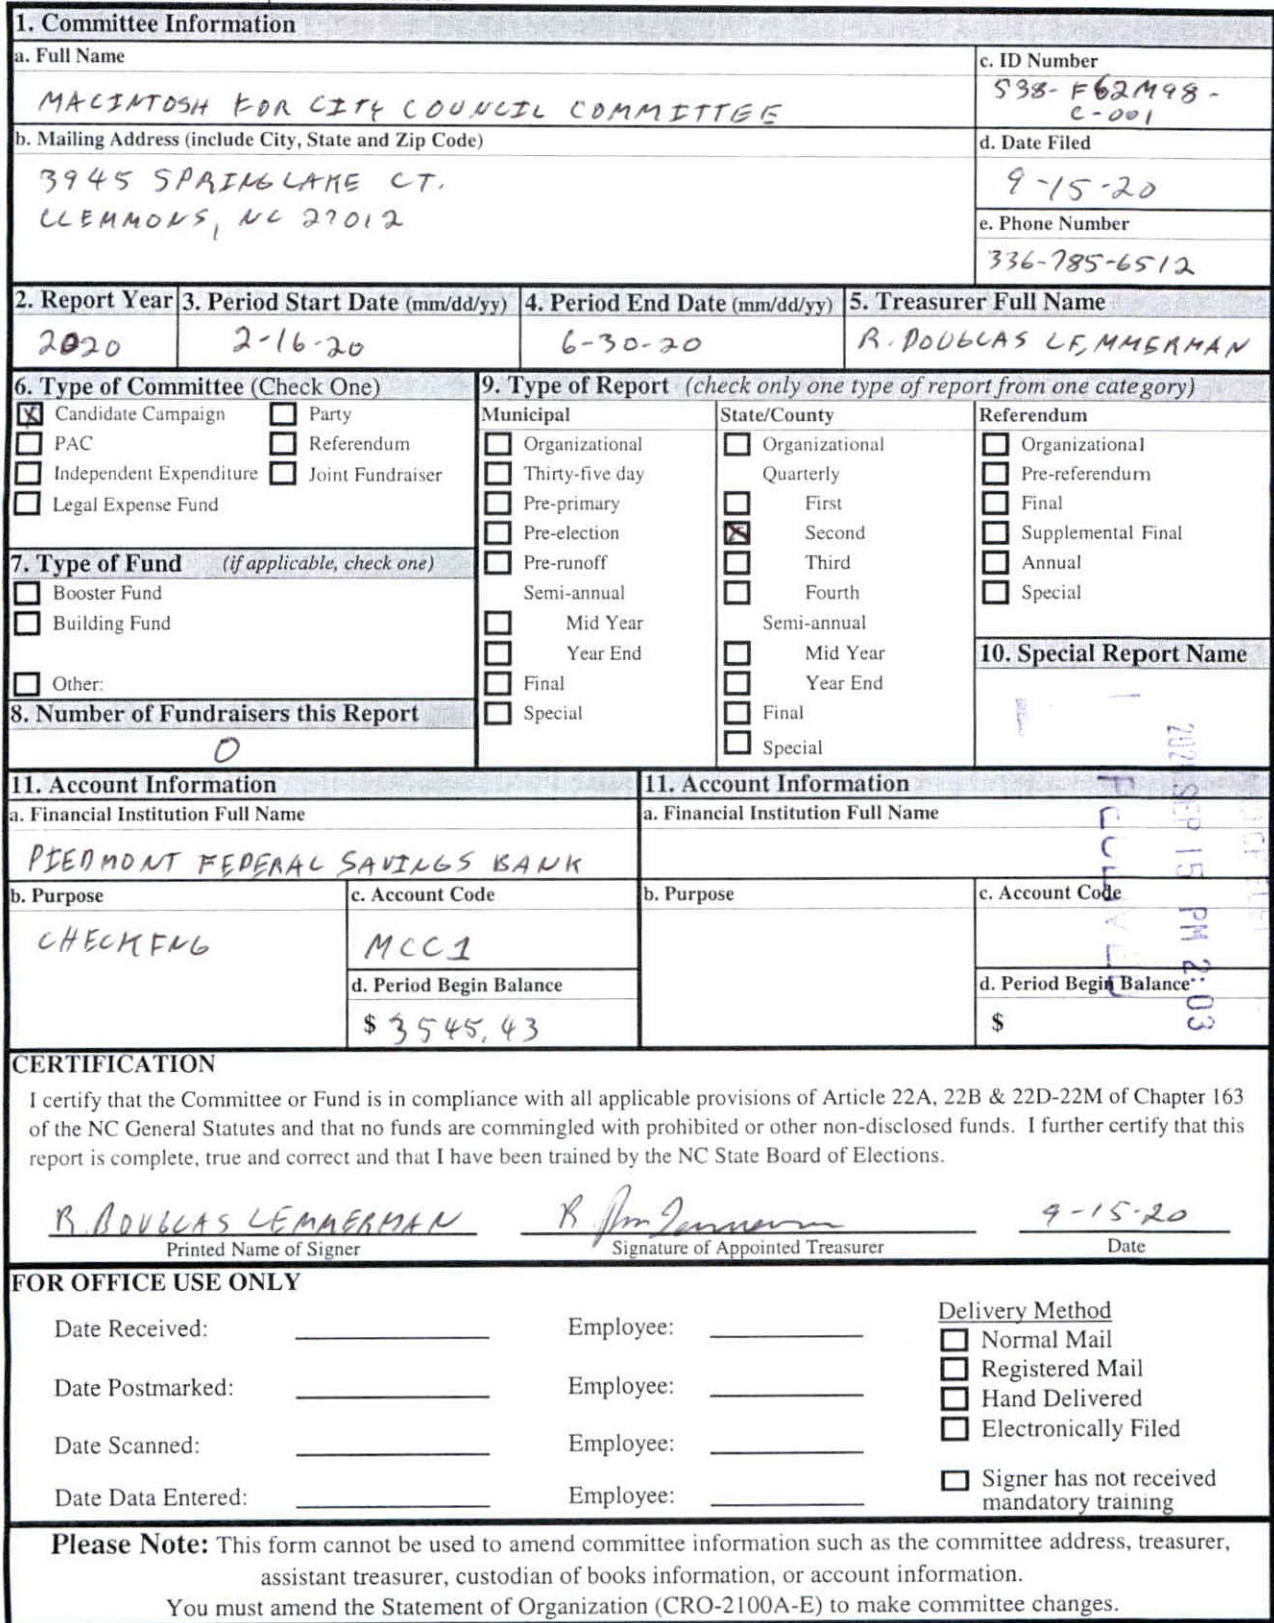 1. Committee Information
a. Full Name
MACINTOSH FOR CITY COUNCIL COMMITTEE
c. ID Number
538-F62M98-
C-001
b. Mailing Address (include City, State and Zip Code)
3945 SPRINGLAKE CT.
CLEMMONS, NC 27012
d. Date Filed
9-15-20
e. Phone Number
336-785-6512
2. Report Year
2020
3. Period Start Date (mm/dd/yy)
2-16-20
4. Period End Date (mm/dd/yy)
6-30-20
5. Treasurer Full Name
R. DOUGLAS LEMMERMAN
6. Type of Committee (Check One)
X Candidate Campaign
Party
PAC
Referendum
Independent Expenditure
Joint Fundraiser
Legal Expense Fund
7. Type of Fund (if applicable, check one)
Booster Fund
Building Fund
Other:
8. Number of Fundraisers this Report
0
9. Type of Report (check only one type of report from one category)
Municipal
Organizational
Thirty-five day
Pre-primary
Pre-election
Pre-runoff
Semi-annual
Mid Year
Year End
Final
Special
State/County
Organizational
Quarterly
First
X Second
Third
Fourth
Semi-annual
Mid Year
Year End
Final
Special
Referendum
Organizational
Pre-referendum
Final
Supplemental Final
Annual
Special
10. Special Report Name
2020 SEP 15 PM 2:03
11. Account Information
a. Financial Institution Full Name
PIEDMONT FEDERAL SAVINGS BANK
b. Purpose
CHECKING
c. Account Code
MCC1
d. Period Begin Balance
$ 3545.43
11. Account Information
a. Financial Institution Full Name
b. Purpose
c. Account Code
d. Period Begin Balance
$
CERTIFICATION
I certify that the Committee or Fund is in compliance with all applicable provisions of Article 22A, 22B & 22D-22M of Chapter 163
of the NC General Statutes and that no funds are commingled with prohibited or other non-disclosed funds. I further certify that this
report is complete, true and correct and that I have been trained by the NC State Board of Elections.
R. DOUGLAS LEMMERMAN
9-15-20
Printed Name of Signer
Signature of Appointed Treasurer
Date
FOR OFFICE USE ONLY
Date Received:
Employee:
Date Postmarked:
Employee:
Date Scanned:
Employee:
Date Data Entered:
Employee:
Delivery Method
Normal Mail
Registered Mail
Hand Delivered
Electronically Filed
Signer has not received
mandatory training
Please Note: This form cannot be used to amend committee information such as the committee address, treasurer,
assistant treasurer, custodian of books information, or account information.
You must amend the Statement of Organization (CRO-2100A-E) to make committee changes.